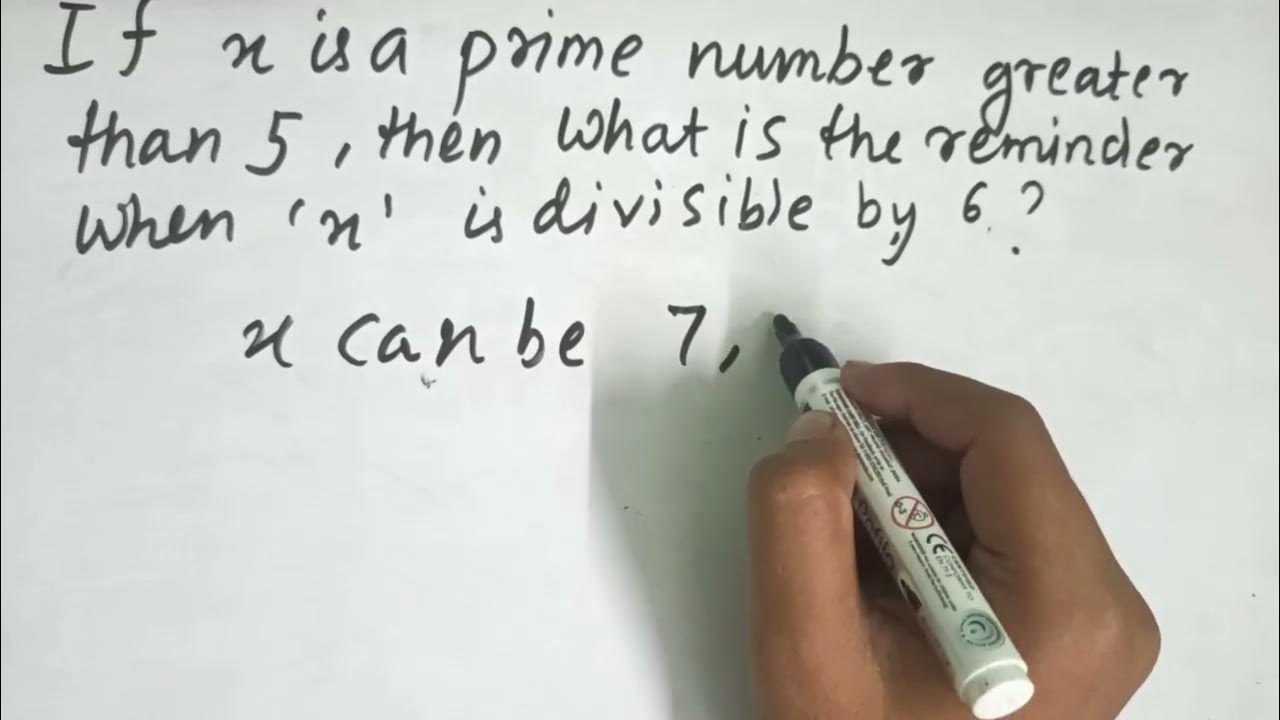 If x is a prime number greater
than 5, then what is the reminder
when 'x' is divisible by 6?
x can be 7,
CE